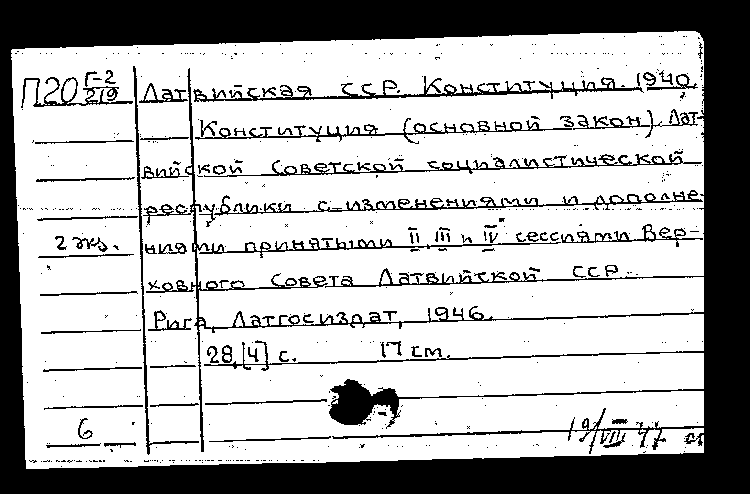 П20 Г-2/219 Латвийская ССР. Конституция. 1940.
Конституция (основной закон) Лат-
вийской Советской социалистической
республики с изменениями и дополне-
2 экз. ниями принятыми II, III и IV сессиями Вер-
ховного Совета Латвийской ССР.
Рига, Латгосиздат, 1946.
28,[4] с. 17 см.
6
19/VIII 47